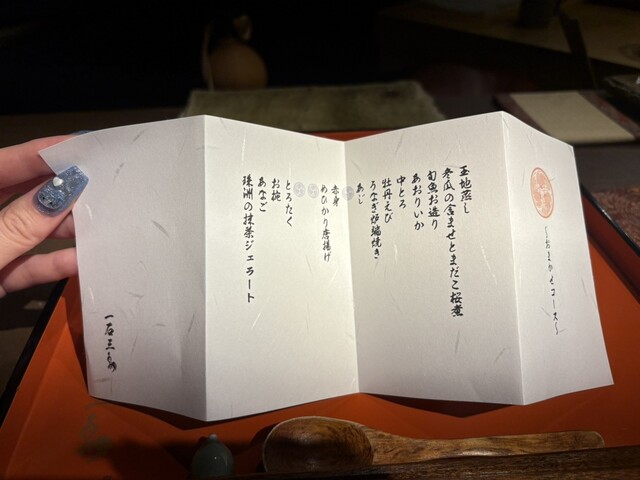 ～おまかせコース～
玉地蒸し
冬瓜の含ませとまだこ桜煮
旬魚お造り
あおりいか
中とろ
牡丹えび
うなぎ炉端焼き
あじ
赤身
めひかり唐揚げ
とろたく
お椀
あなご
珠洲の抹茶ジェラート
一石三